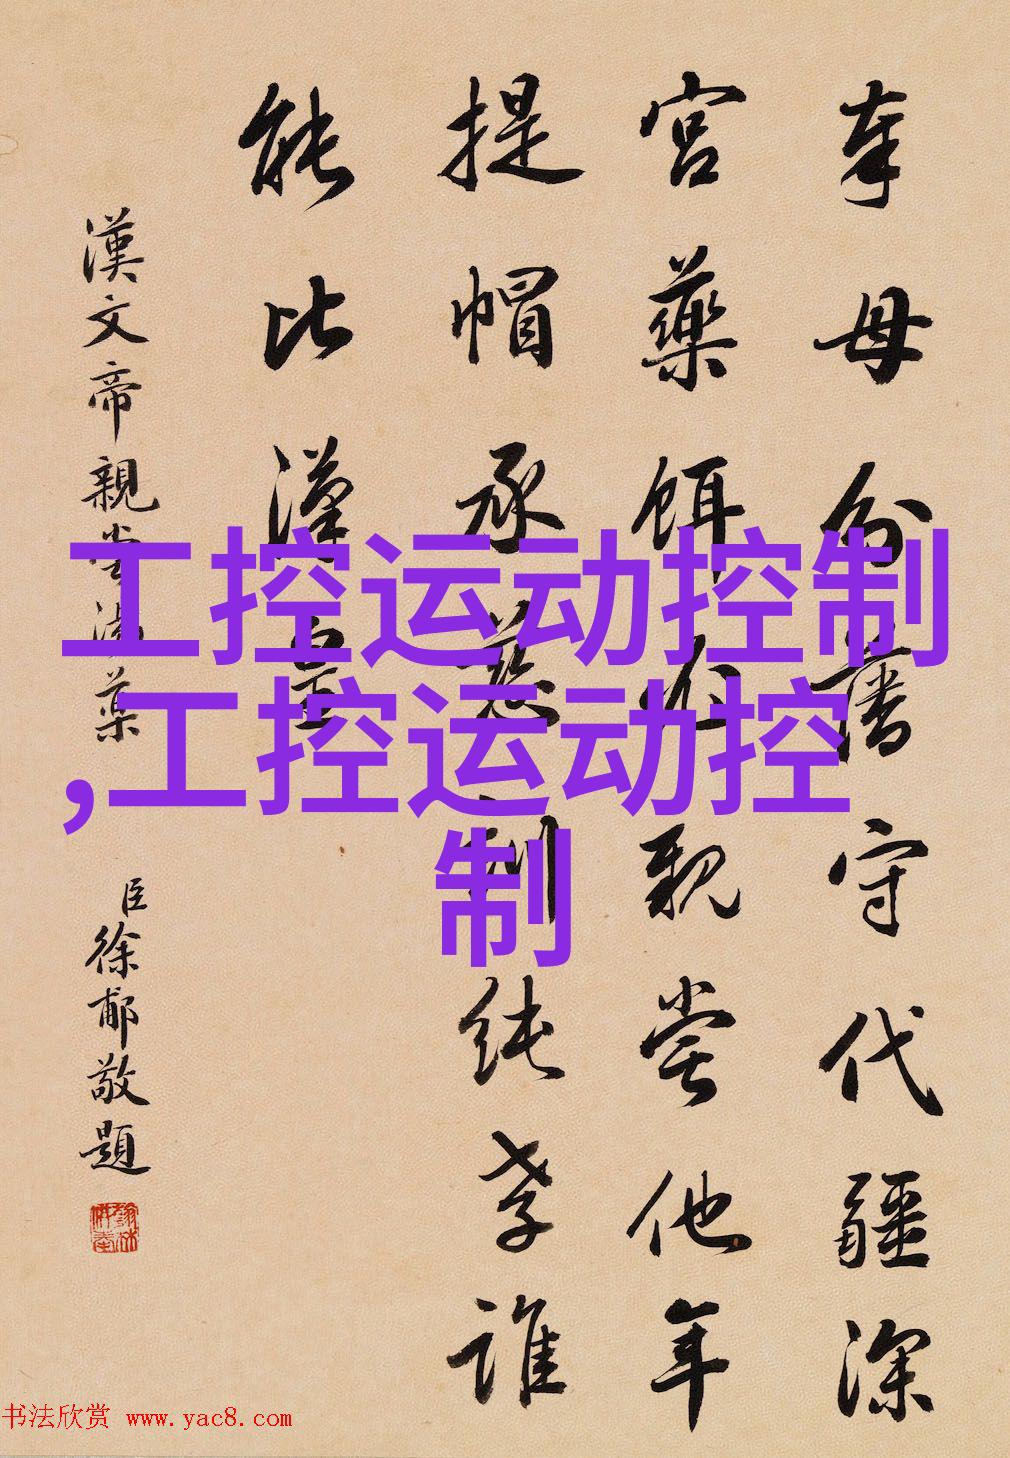 奉母分藩守代疆深
宮藥餌必親嘗他年
提帽承慈訓純孝誰
能比漢皇
漢文帝親嘗湯藥
臣徐郙敬題
工控运动控制
,工控运动控
制
书法欣赏 www.yac8.com